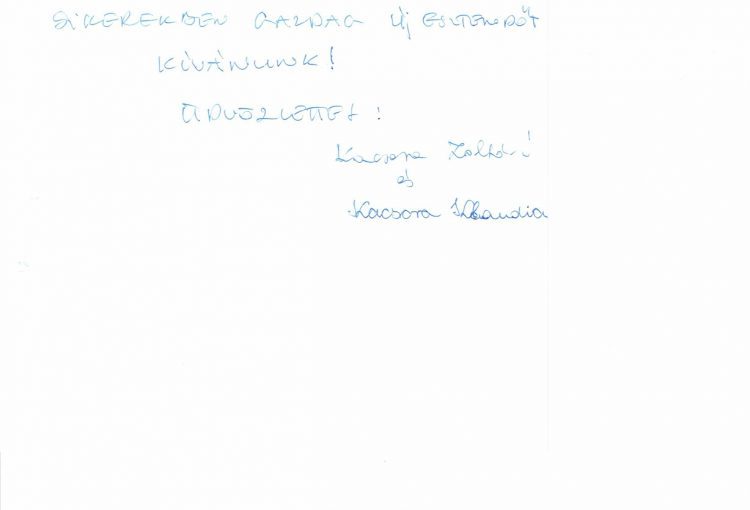 SIKEREKBEN GAZDAG ÚJ ESZTENDŐT
KÍVÁNUNK!
ÜDVÖZLETTEL:
Kacsora Zoltán
és
Kacsora Klaudia